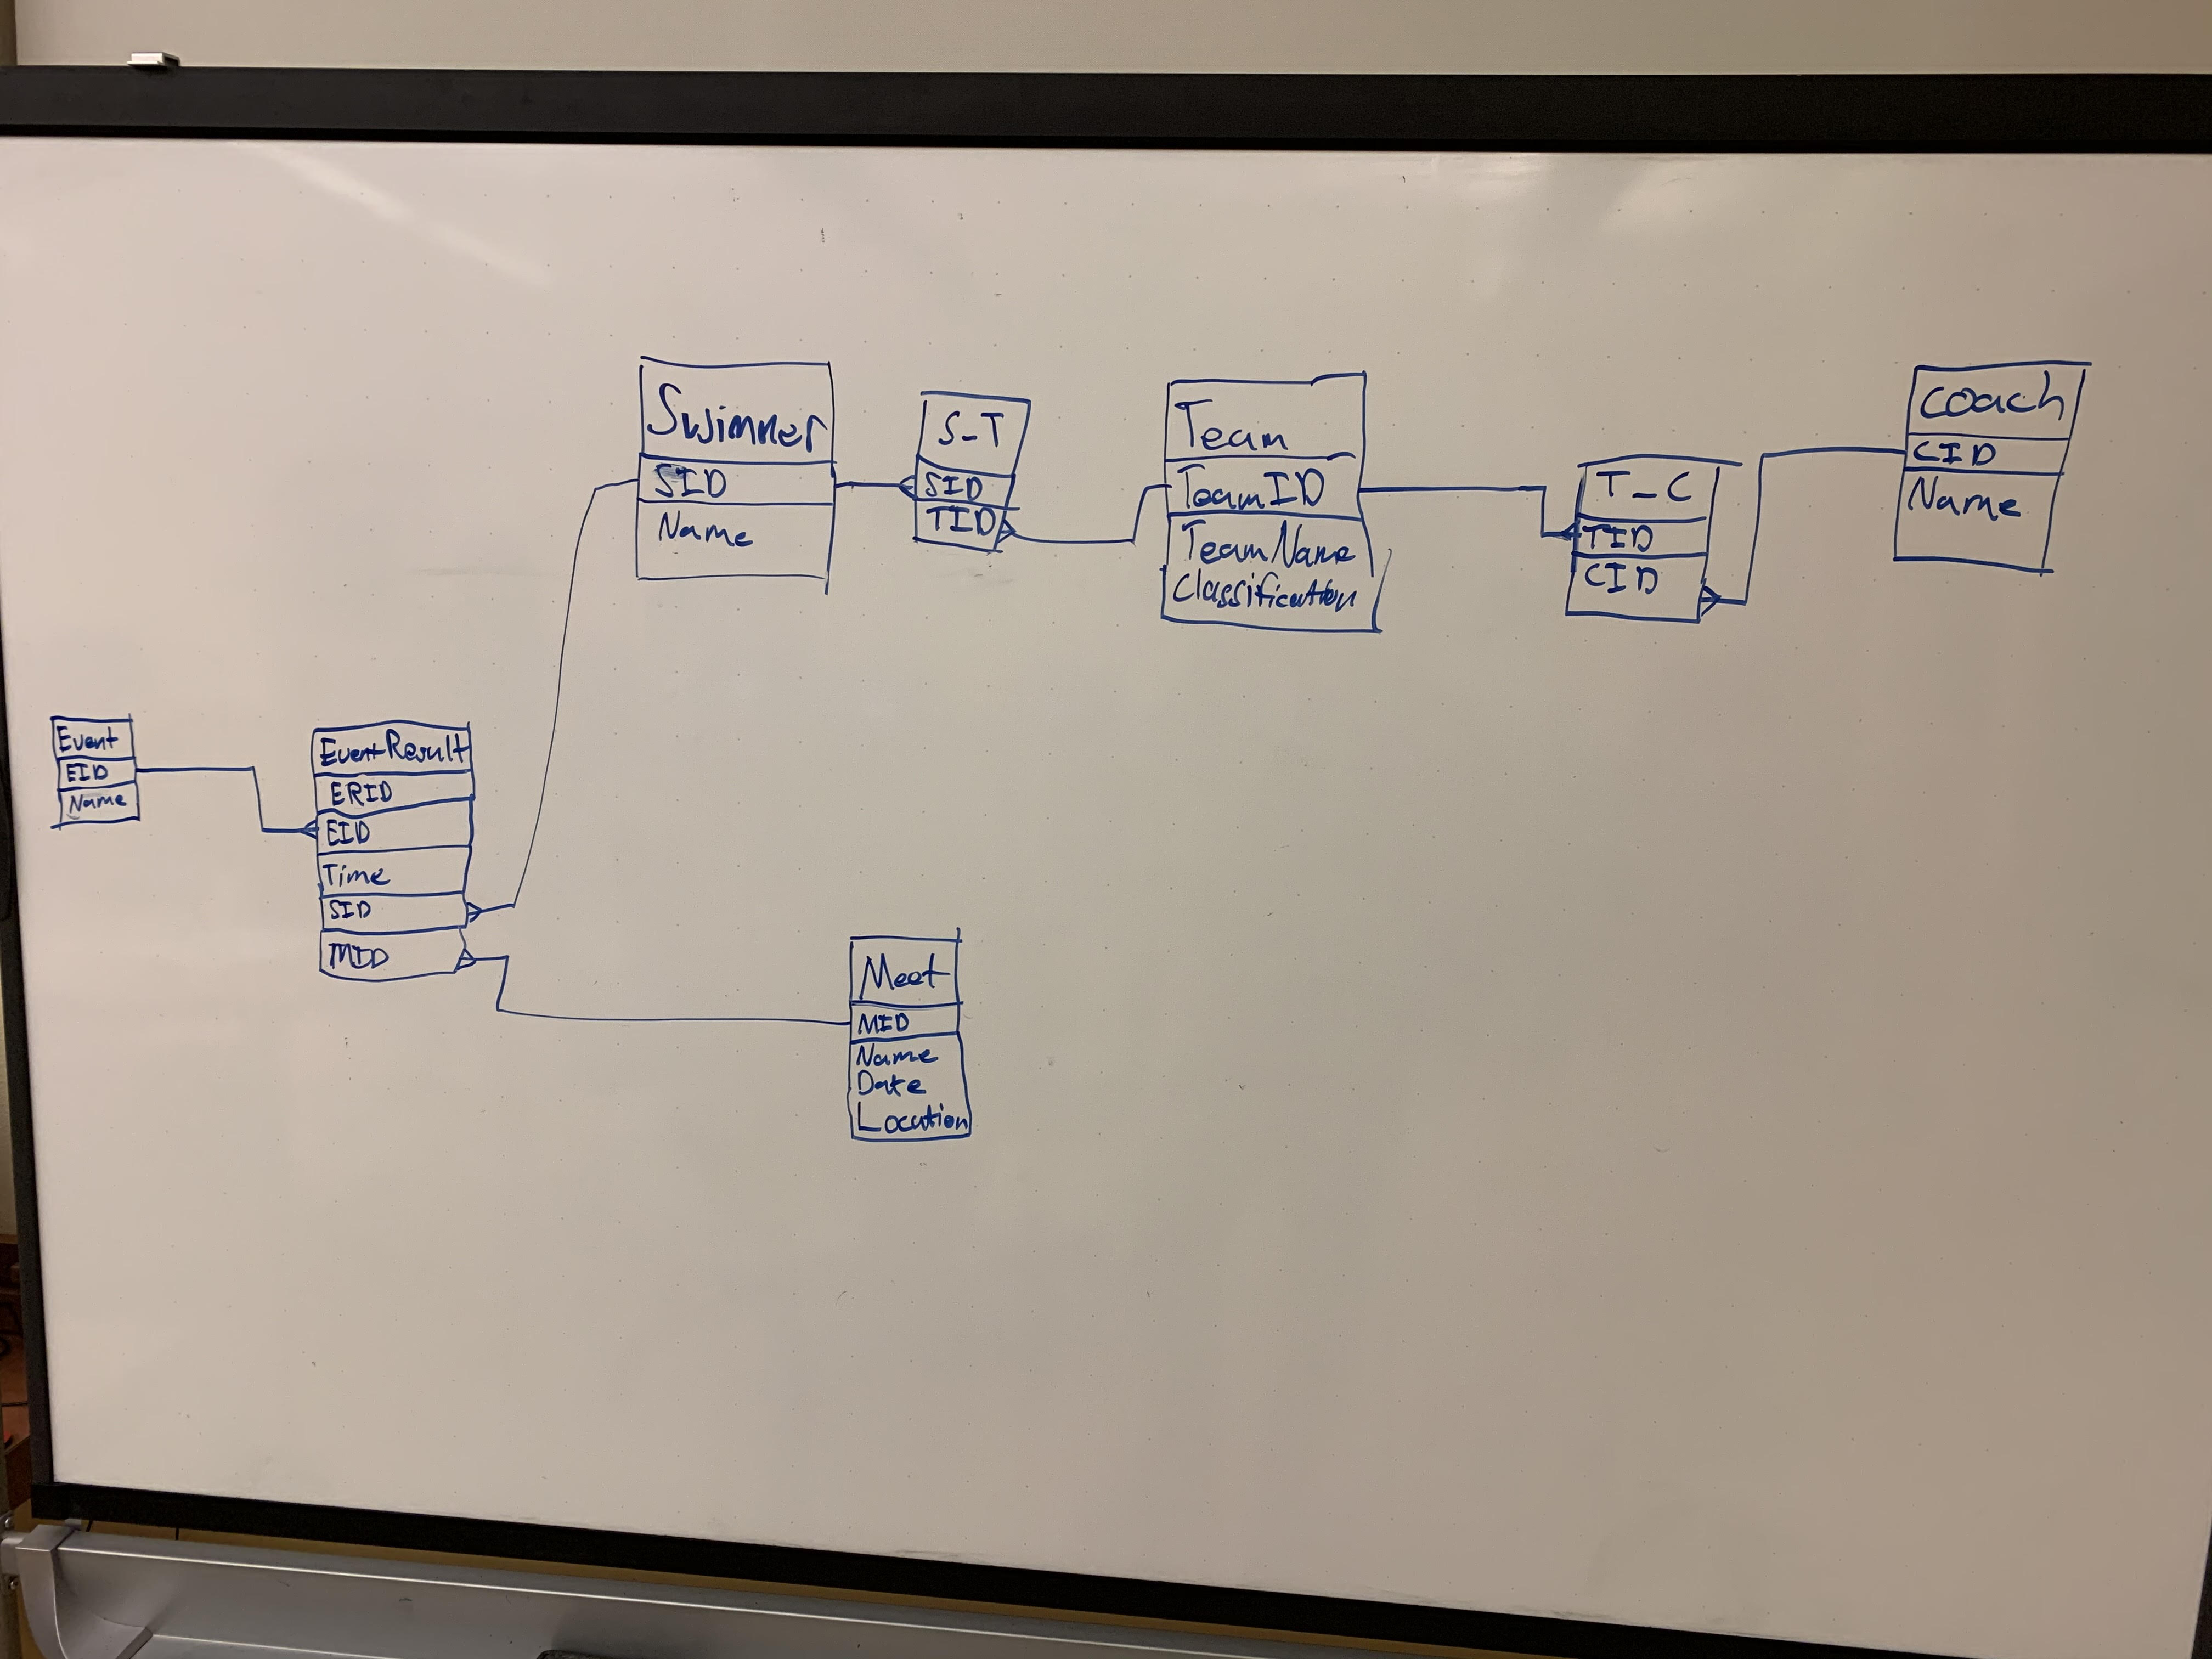 Swimmer
SID
Name
S-T
SID
TID
Team
TeamID
TeamName
Classification
T-C
TID
CID
Coach
CID
Name
Event
EID
Name
EventResult
ERID
EID
Time
SID
MID
Meet
MID
Name
Date
Location